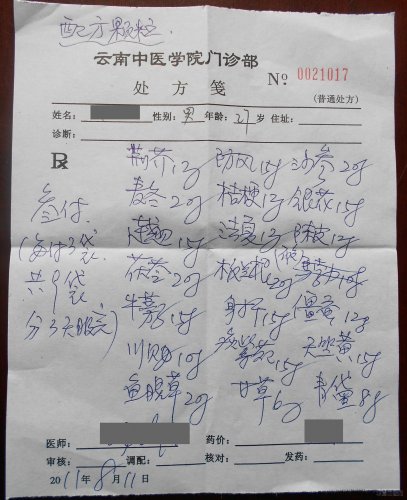 配方颗粒
云南中医学院门诊部
处方笺
No. 0021017
(普通处方)
姓名： 性别：男 年龄：27 岁 住址：
诊断：
R
荆芥12g 防风15g 沙参20g
麦冬20g 桔梗13g 银花15g
连翘15g 法夏13g 陈皮12g
茯苓20g 板兰根20g
牛蒡15g 射干15g 僵蚕12g
川贝10g 15g 天竺黄15g
鱼腥草20g 甘草6g 青黛8g
叁付
(每付3袋
共9袋
分3天服完)
医师： 药价：
审核： 调配： 核对： 发药：
2011年8月11日